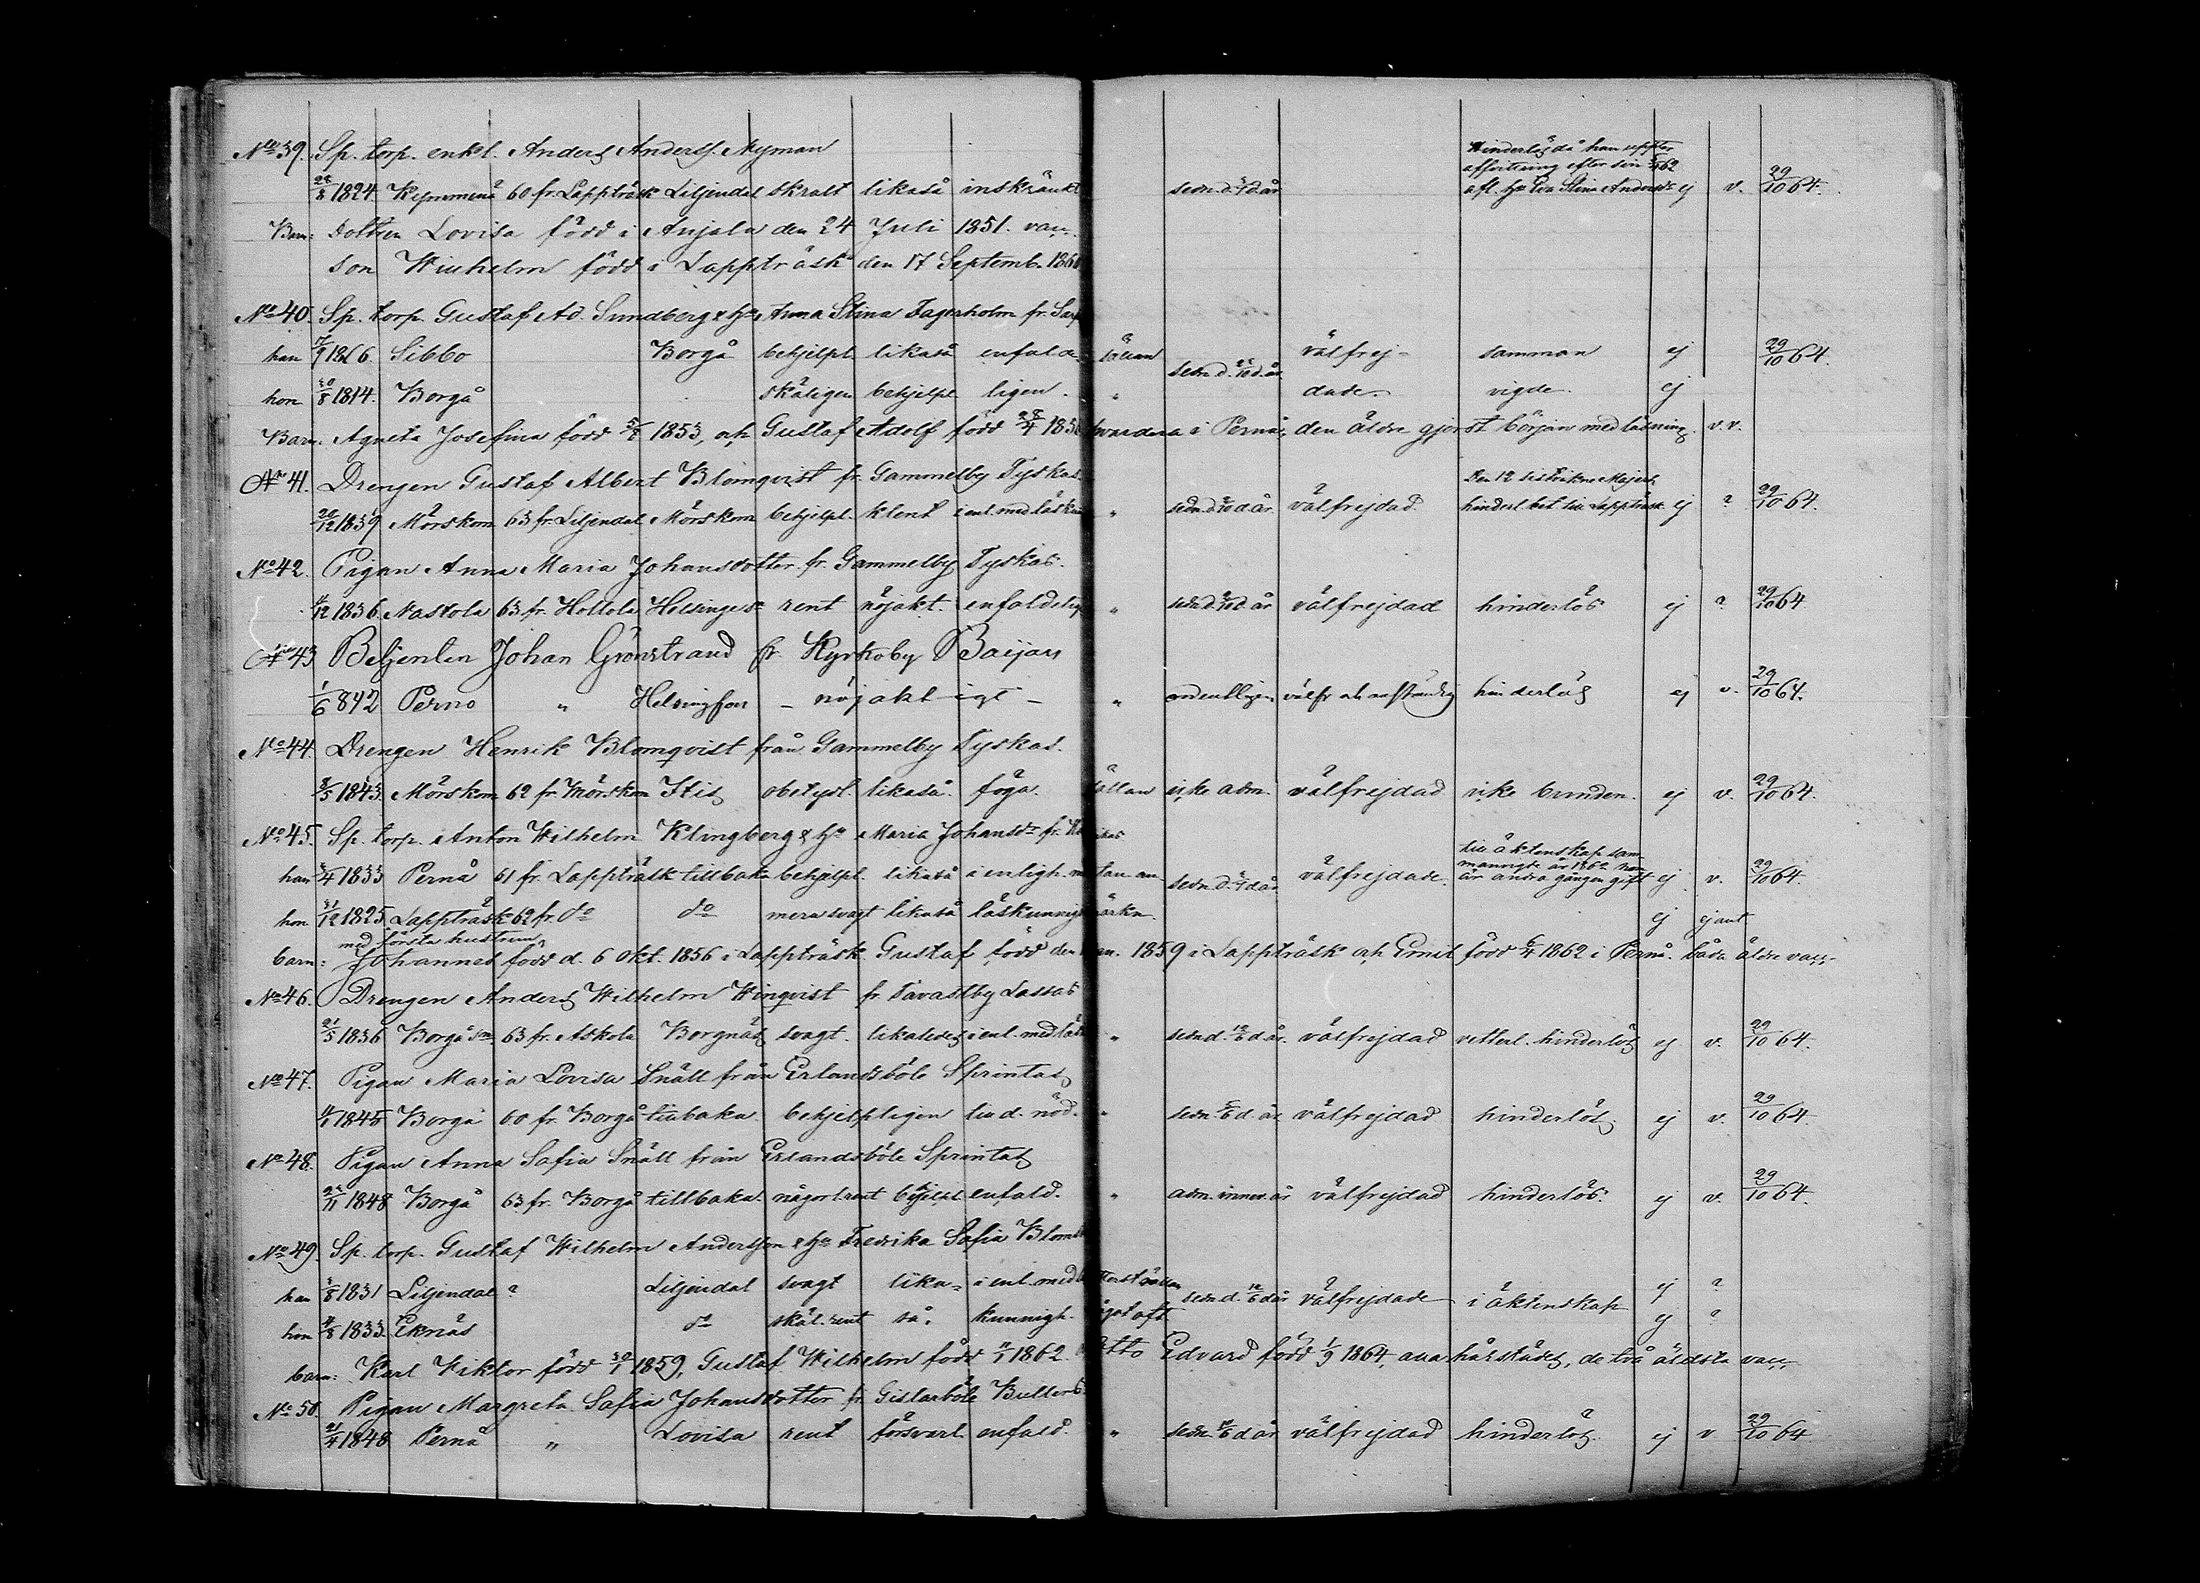 No 39. Sp. torp. enkl. Anders Anderss. Nyman
Hinderlös då han uppter
afvittring efter sin 62
28/8 1824 Kymmene 60 fr. Lappträsk Liljendal skralt likaså inskränkt sedn. d. d. år afl. hu Eva Stina Andersdr ej v. 29/10 64.
Barn: dottren Lovisa född i Anjala den 24 Juli 1851. vacc.
son Wilhelm född i Lappträsk den 17 Septemb. 186
No 40. Sp. torp. Gustaf Ad. Sundberg & hu Anna Stina Fagerholm fr.
han 17/9 1826 Sibbo Borgå behjelpl. likaså enfald sällan sedn. d. /10 d. år. välfrej- samman ej 29/10 64.
hon 20/8 1814. Borgå skäligen behjelpl. ligen. " dade. vigde. ej
Barn. Agneta Josefina född 1853, och Gustaf Adolf född 28/4 185 hvardera i Pernå, den äldre gjort början med läsning. v. v.
No 41. Drengen Gustaf Albert Blomqvist fr. Gammelby Tyskas.
20/12 1839 Mörskom 63 fr. Liljendal Mörskom behjelpl. klent i enl. med läskun " sedn. d. /10 d. år. välfrejdad hinderl. bet. till Lappträsk ej ? 29/10 64.
No 42. Pigan Anna Maria Johansdotter fr. Gammelby Tyskas.
4/12 1836 Nastola 63 fr. Hollola Helsinge sn rent nöjakt. enfaldelig " sedn. d. /10 d. år välfrejdad hinderlös ej ? 29/10 64
No 43 Betjenten Johan Grönstrand fr. Kyrkoby Baijars
1/6 842 Perno " Helsingfors – nöjaktigt – " ordentligen välfr. och anständig hinderlös ej v. 29/10 64.
No 44. Drengen Henrik Blomqvist från Gammelby Tyskas.
3/5 1843. Mörskom 62 fr. Mörskom Itis obetydl. likaså. föga. sällan icke adm. välfrejdad icke bunden. ej v. 29/10 64.
No 45. Sp. torp. Anton Wilhelm Klingberg & hu Maria Johansdr fr.
till äktenskap sam-
manvigde år 1862 hon
han /4 1833 Pernå 61 fr. Lappträsk tillbaka behjelpl. likaså i enligh. utan an sedn. d. d. år välfrejdade. är andra gången gift ej v. 29/10 64.
hon 31/12 1825 Lappträsk 62 fr. do do mera svagt likaså läskunnigh märkn. ej ej ant
med första hustrun
barn: Johannes född d. 6 Okt. 1856 i Lappträsk Gustaf född den Jan. 1859 i Lappträsk och Emil född 6/4 1862 i Pernå. båda äldre vacc.
No 46. Drengen Anders Wilhelm Winqvist fr. Tavastby Lassas
21/5 1836 Borgå sn. 63 fr. Askola Borgnäs svagt. likaledes i enl. med läs " sedn. d. 12/6 d. år. välfrejdad vetterl. hinderlös ej v. 29/10 64.
No 47. Pigan Maria Lovisa Snäll från Erlandsböle Sprintas
4/1 1845 Borgå 60 fr. Borgå tillbaka. behjelpligen till d. nöd. " sedn. /6 d. år. välfrejdad hinderlös. ej v. 29/10 64.
No 48. Pigan Anna Safia Snäll från Erlandsböle Sprintas
24/11 1848 Borgå 63 fr. Borgå tillbaka. någorl. rent behjelpl. enfald. " adm. innev. år välfrejdad hinderlös. ej v. 29/10 64.
No 49. Sp. torp. Gustaf Wilhelm Andersson & hu Fredrika Safia Blom
han /8 1831 Liljendal ? Liljendal svagt lika- i enl. med ytterst sällan sedn. d. 12/6 d. år välfrejdade i äktenskap ej ?
hon 4/8 1833. Ekenäs do skäl. rent så. kunnigh. något oft ej ?
barn: Karl Viktor född 30/1 1859, Gustaf Wilhelm född 11/1 1862. Otto Edvard född 1/9 1864, alla härstädes, de två äldsta vacc.
No 50. Pigan Margreta Safia Johansdotter fr. Gislarböle Bullers
21/4 1848 Pernå " Lovisa rent försvarl. enfald. " sedn. 12/6 d. år välfrejdad hinderlös. ej v 29/10 64